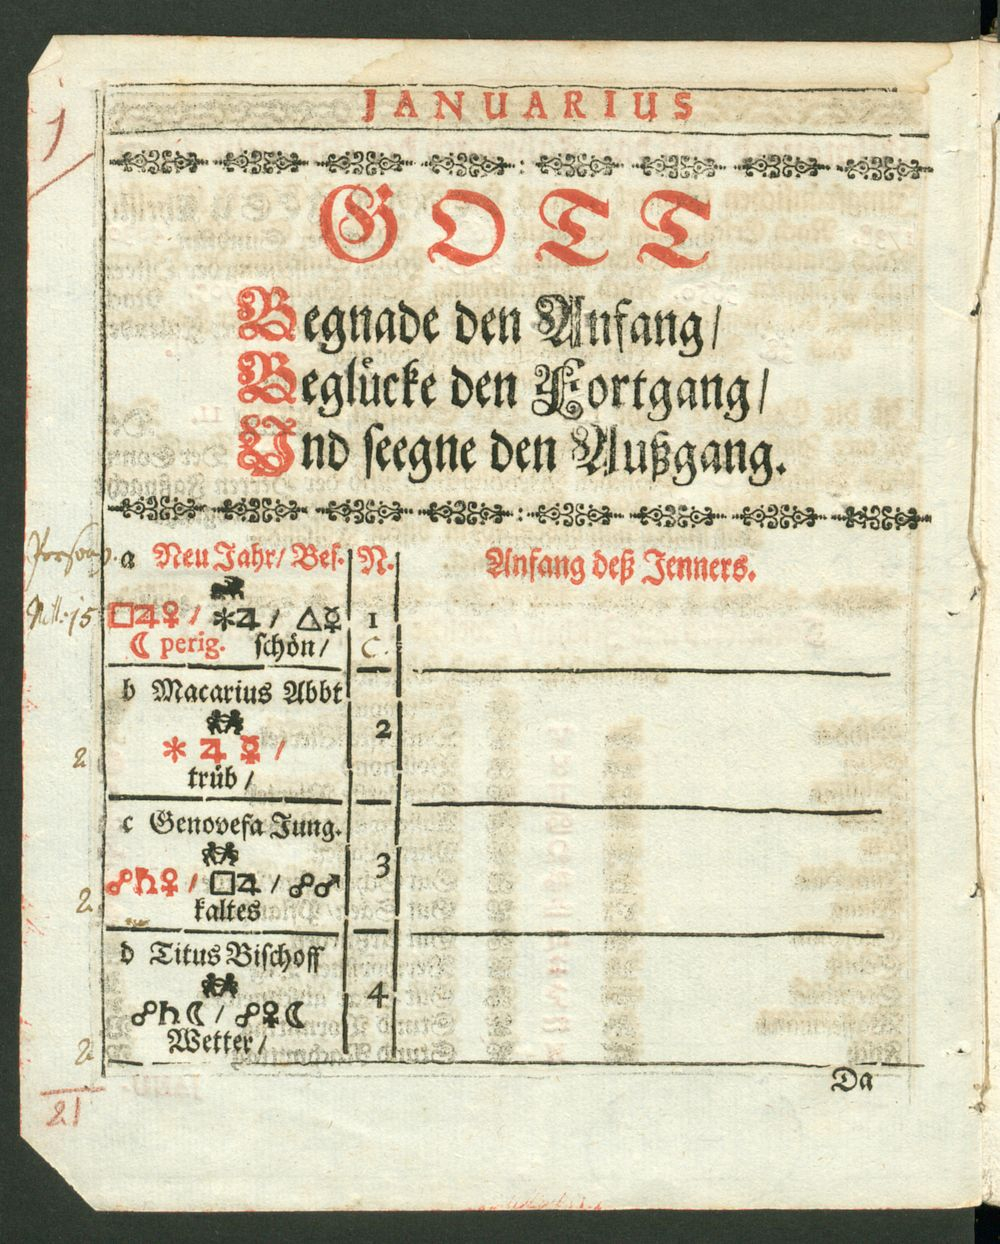 JANUARIUS
1
GOTT
Begnade den Anfang/
Beglücke den Fortgang/
Und seegne den Außgang.
a Neu Jahr/ Bes. N. Anfang deß Jenners.
□♃♀ / ✱♃ / △☿ 1
☾ perig. schön/ C.
b Macarius Abbt
2
✱ ♃ ☿ /
2 trüb /
c Genovefa Jung.
3
☍♄♀ / □♃ / ☍♂
2. kaltes
d Titus Bischoff
4
☍♄☾ / ☍♀☾
2 Wetter /
Da
21